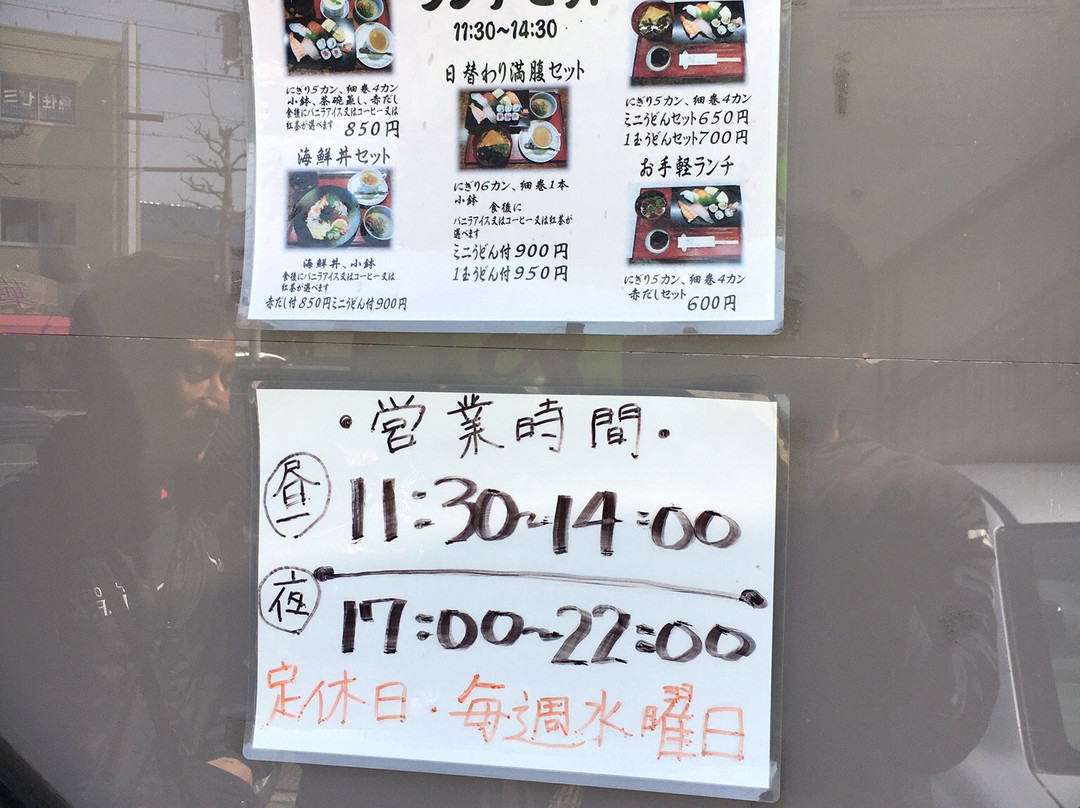 11:30~14:30
にぎり5カン、細巻4カン
小鉢、茶碗蒸し、赤だし
食後にバニラアイス又はコーヒー又は
紅茶が選べます 850円
海鮮丼セット
海鮮丼、小鉢
食後にバニラアイス又はコーヒー又は
紅茶が選べます
赤だし付850円ミニうどん付900円
日替わり満腹セット
にぎり6カン、細巻1本
小鉢 食後に
バニラアイス又はコーヒー又は紅茶が
選べます
ミニうどん付900円
1玉うどん付950円
にぎり5カン、細巻4カン
ミニうどんセット650円
1玉うどんセット700円
お手軽ランチ
にぎり5カン、細巻4カン
赤だしセット 600円
・営業時間・
昼 11:30~14:00
夜 17:00~22:00
定休日・毎週水曜日